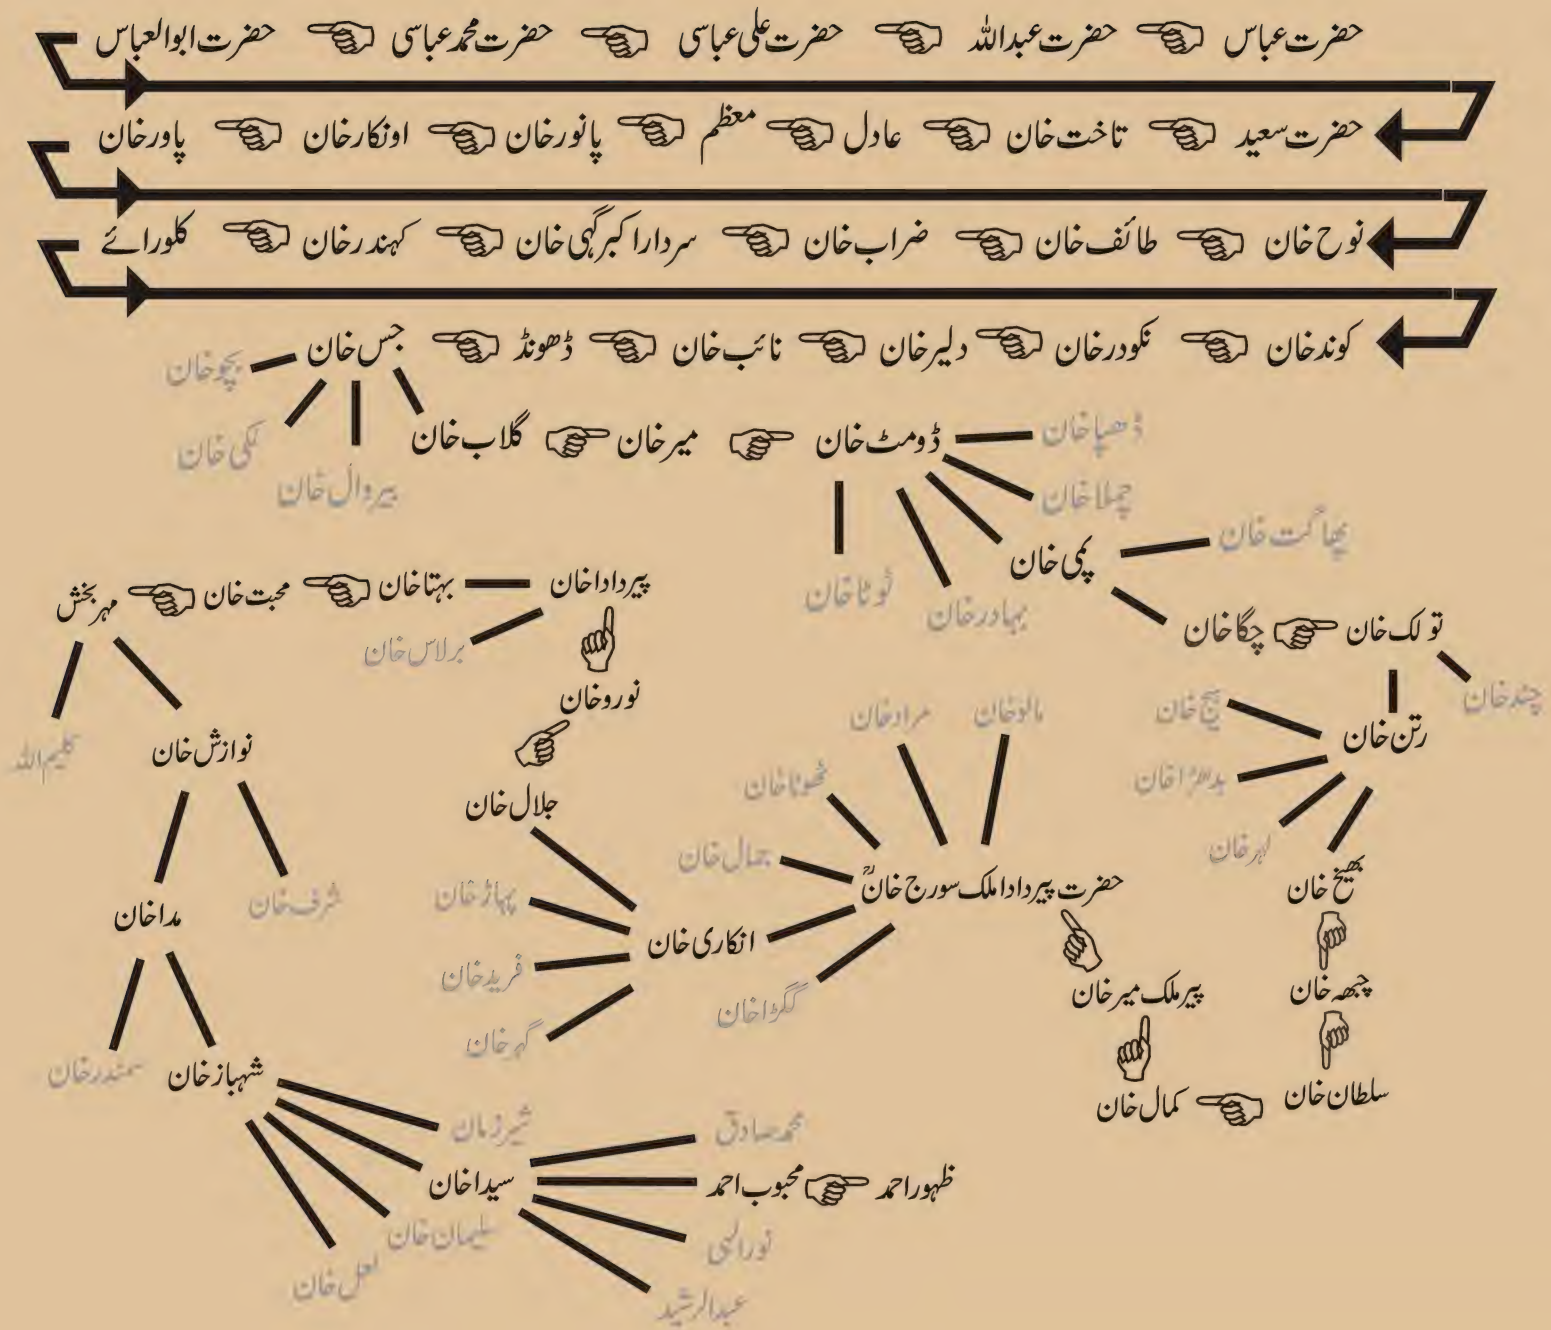 حضرت عباس حضرت عبداللہ حضرت علی عباسی حضرت محمد عباسی حضرت ابوالعباس
حضرت سعید تاخت خان عادل معظم پانور خان اونکار خان پاور خان
نوح خان طائف خان ضراب خان سردار اکبر گہی خان کہندر خان کلورائے
کوند خان نکودر خان دلیر خان نائب خان ڈھونڈ جس خان
بچو خان
لکی خان
بیروال خان
گلاب خان میر خان ڈومٹ خان
ڈھپا خان
چملا خان
پمی خان
بہادر خان
ٹوٹا خان
بھاگت خان
چگا خان تولک خان
چند خان
رتن خان
ہیج خان
بدھڑا خان
لہر خان
بھیخ خان
چبھہ خان
سلطان خان
کمال خان
پیر ملک میر خان
حضرت پیر دادا ملک سورج خانؒ
مالو خان
مراد خان
ٹھوٹا خان
جمال خان
انکاری خان
گگڑا خان
جلال خان
پہاڑ خان
فرید خان
گہر خان
نورو خان
پیر دادا خان
بہتا خان محبت خان مہر بخش
برلاس خان
کلیم اللہ
نوازش خان
شرف خان
مدا خان
سمندر خان
شہباز خان
شیر زمان
سیدا خان
سلیمان خان
لعل خان
محمد صادق
محبوب احمد ظہور احمد
نور الہی
عبدالرشید